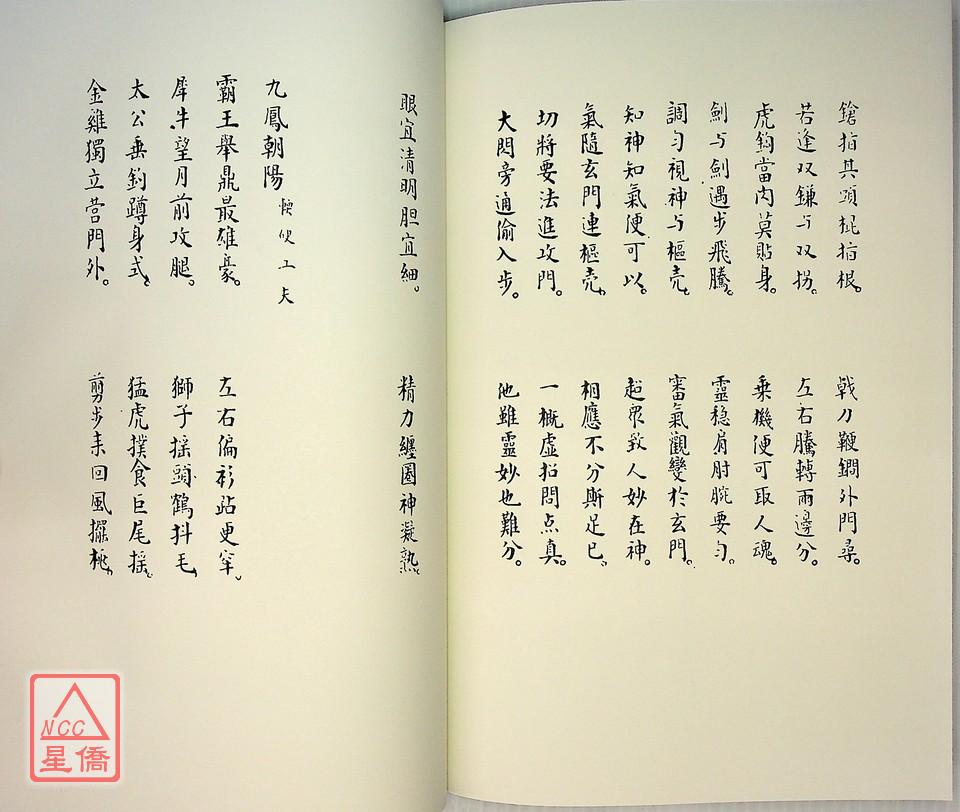 鎗指其頭棍指根。戟刀鞭鐧外門尋。
若逢双鎌与双拐。左右騰轉兩邊分。
虎鈎當內莫貼身。乘機便可取人魂。
劍与劍遇步飛騰。靈穏肩肘腕要勻。
調勻視神与樞壳。審氣觀變於玄門。
知神知氣便可以。超眾致人妙在神。
氣隨玄門連樞壳。相應不分斯足已。
切將要法進攻門。一概虛招問点真。
大閃旁通偷入步。他雖靈妙也難分。
眼宜清明胆宜細。精力纏圓神凝熟。
九鳳朝陽 工夫
霸王舉鼎最雄豪。左右偏衫跕更牢。
犀牛望月前攻腿。獅子搖頭鶴抖毛。
太公垂釣蹲身式。猛虎撲食巨尾搖。
金雞獨立營門外。剪步来回風擺桃。
NCC
星僑